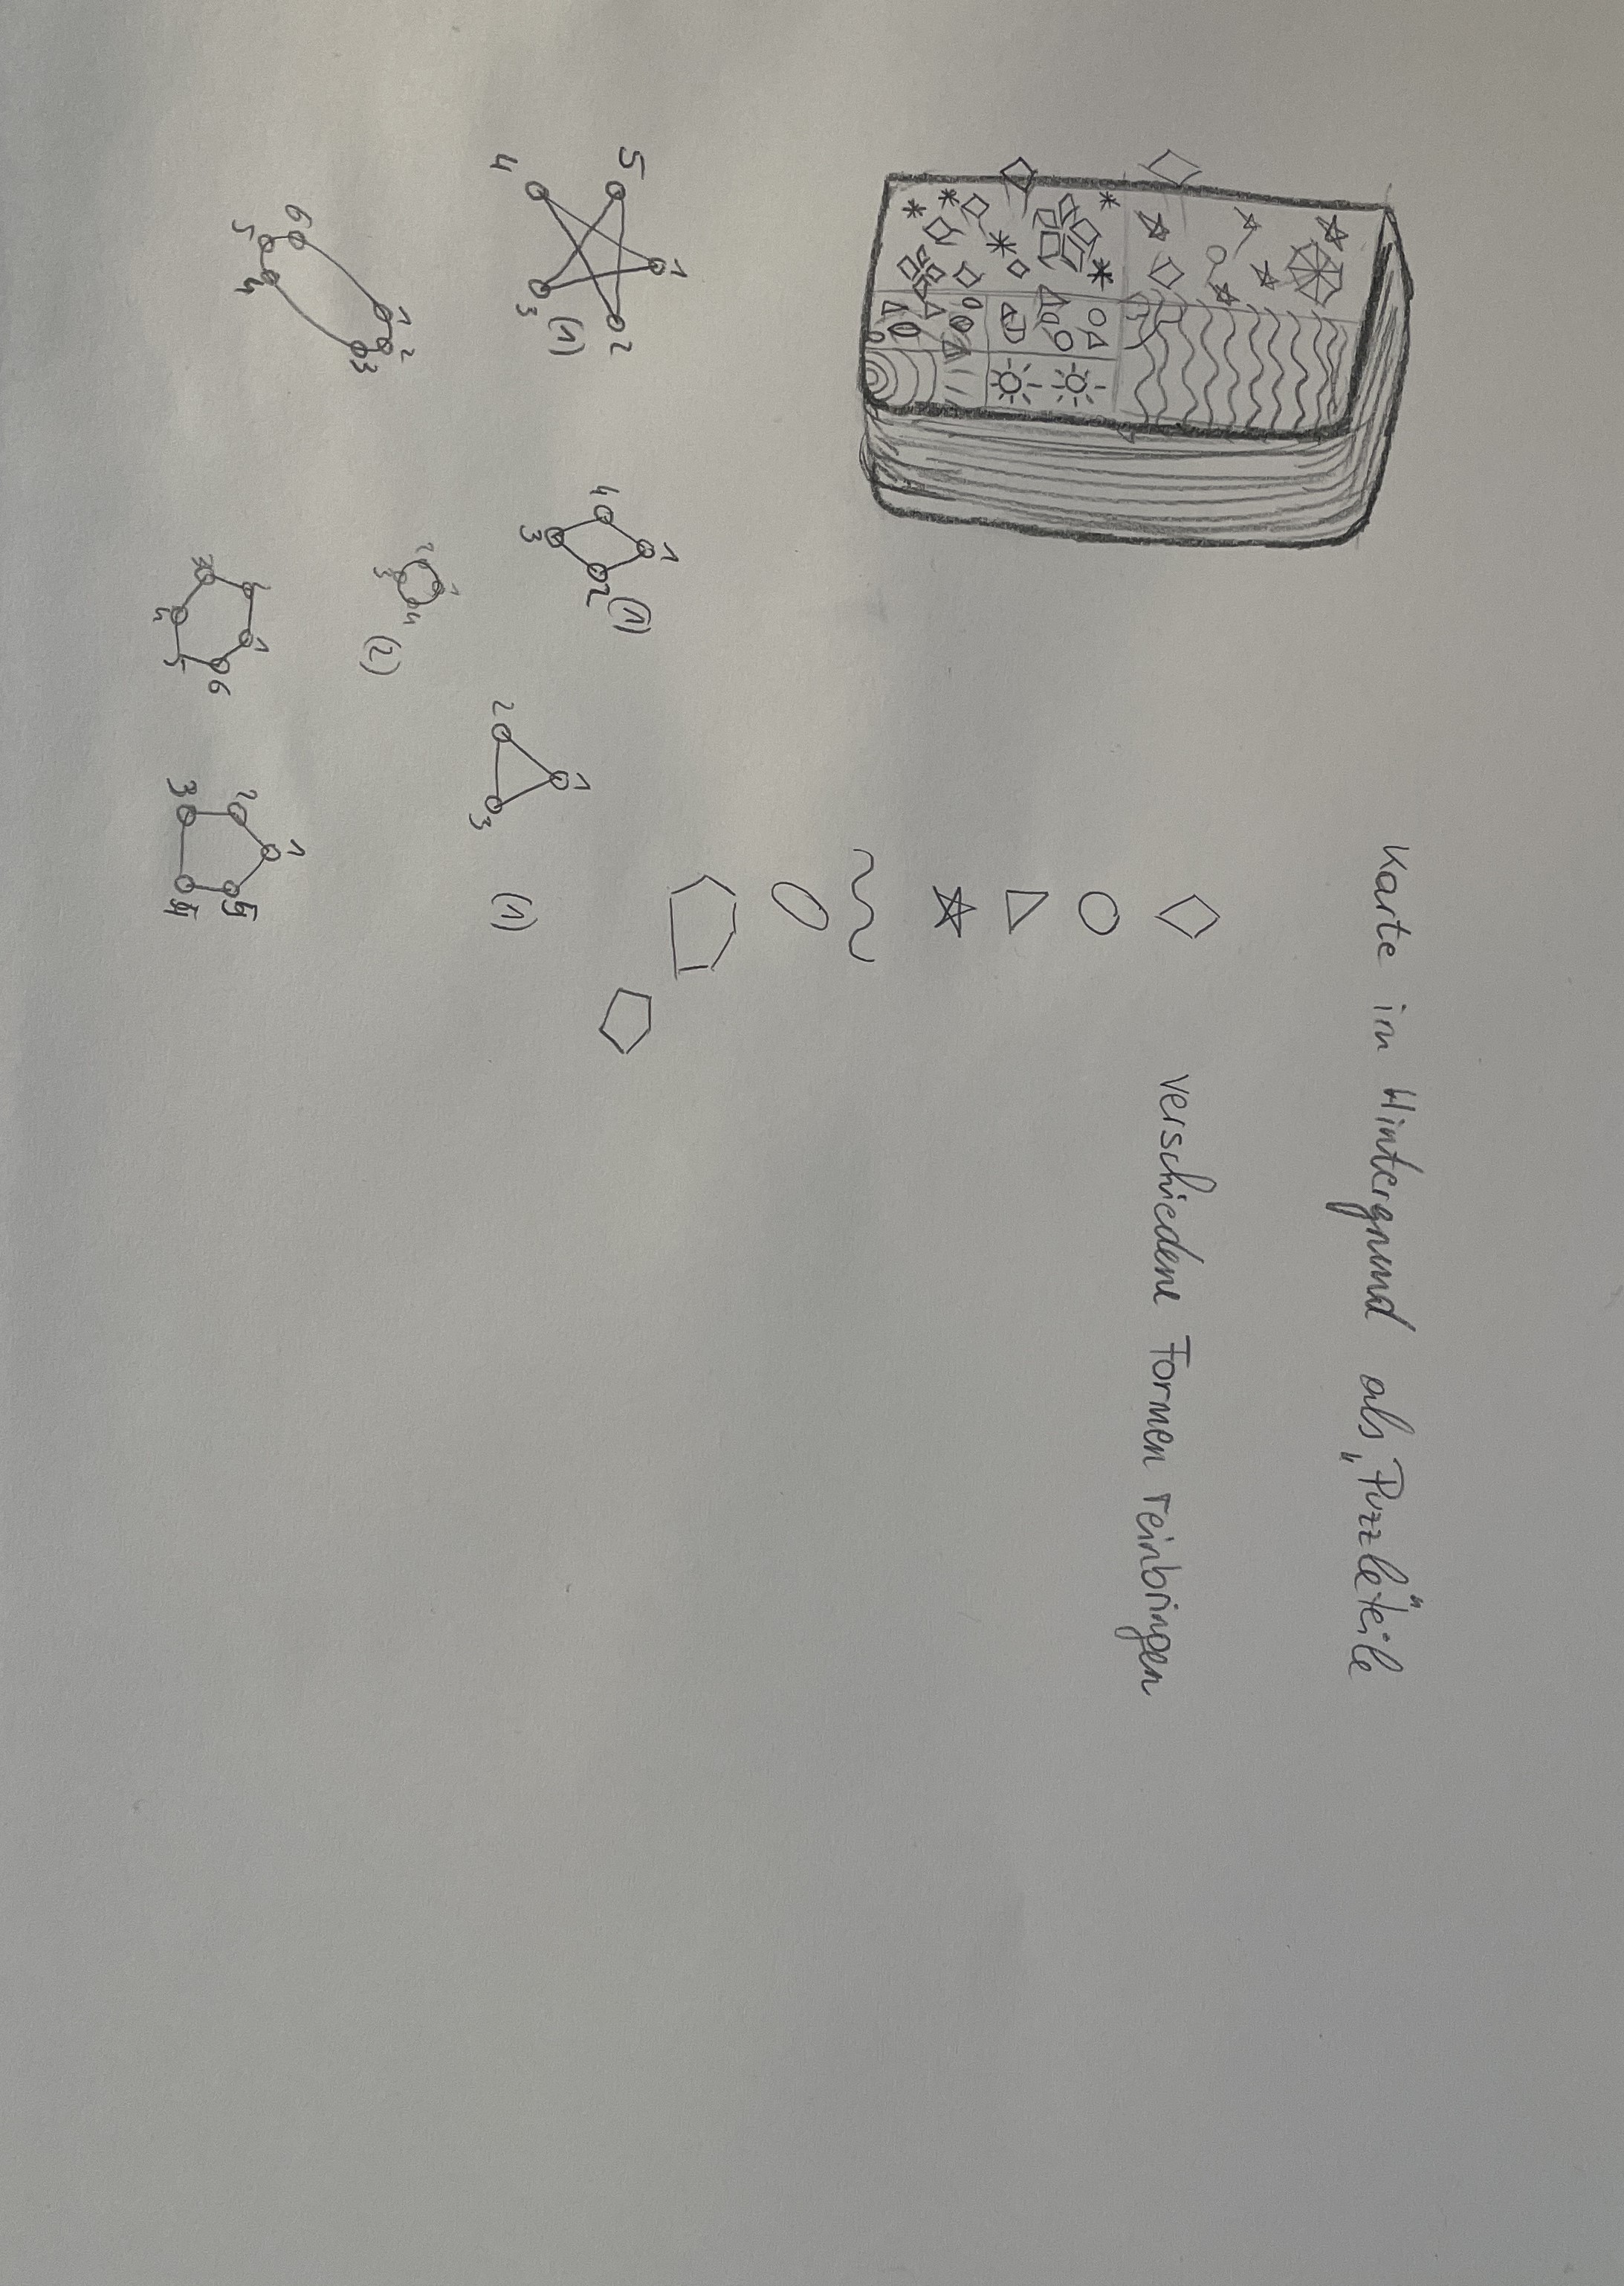 Karte im Hintergrund als „Puzzleteile"
verschiedene Formen reinbringen
5
4
1
3
2
(1)
4
3
1
2
(1)
2
1
3
(1)
6
5
4
1
2
3
2
3
1
4
(2)
4
1
5
6
2
3
1
4
5